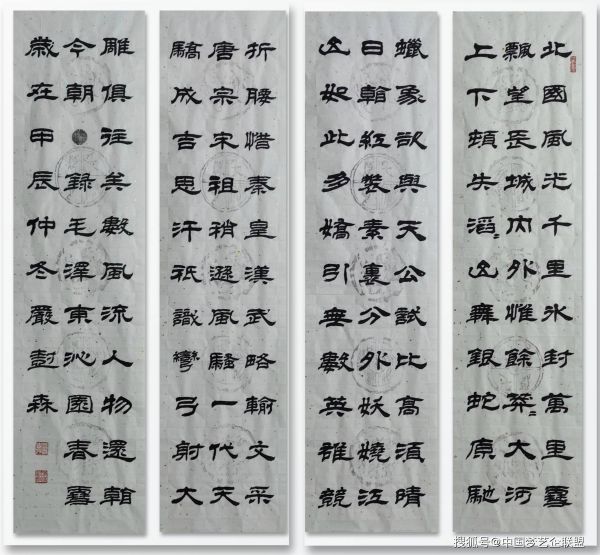 北國風光千里冰封萬里雪
飄望長城內外惟餘莽=大河
上下頓失滔=山舞銀蛇原馳
蠟象欲與天公試比高須晴
日看紅裝素裹分外妖嬈江
山如此多嬌引無數英雄競
折腰惜秦皇漢武略輸文采
唐宗宋祖稍遜風騷一代天
驕成吉思汗祇識彎弓射大
雕俱往矣數風流人物還看
今朝 錄毛澤東沁園春雪
歲在甲辰仲冬嚴森
搜狐号@中国艺企联盟